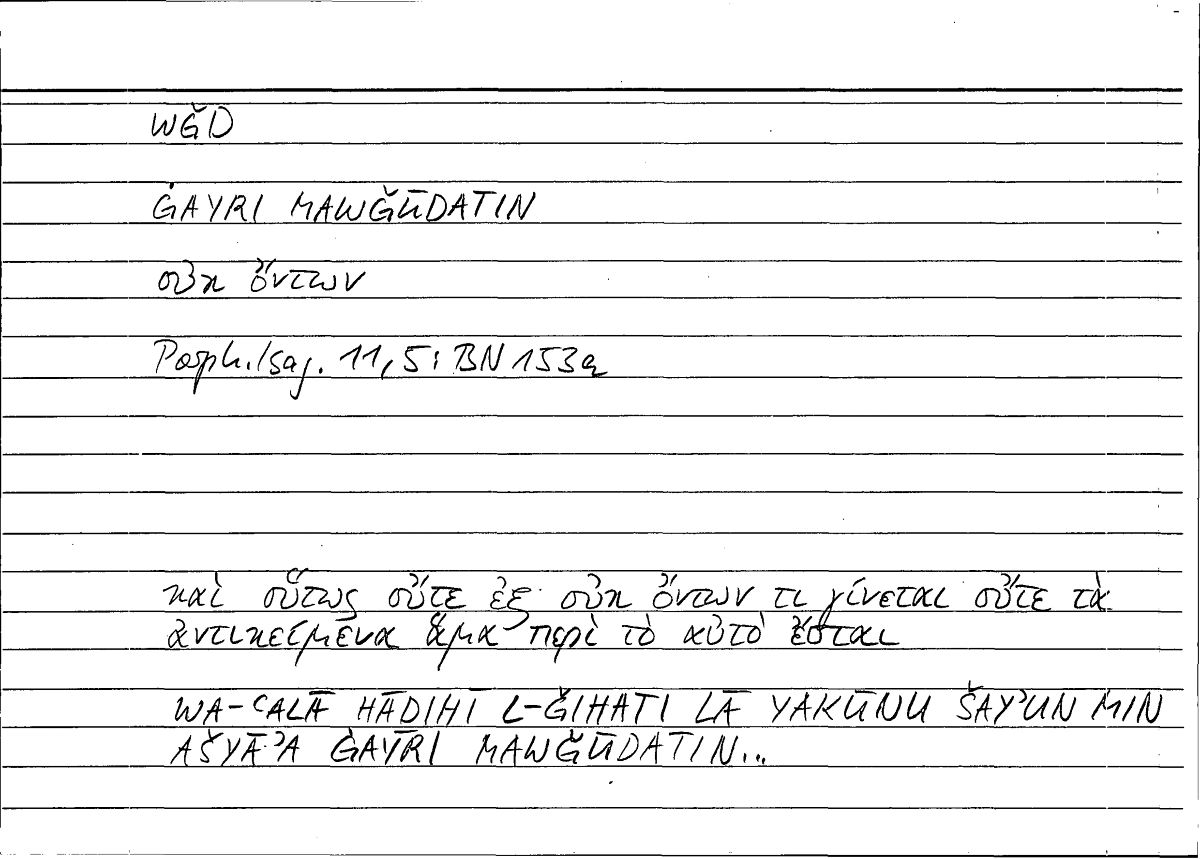 WǦD
ĠAYRI MAWǦŪDATIN
οὐκ ὄντων
Porph. Isag. 11,5: BN 153a
καὶ οὕτως οὔτε ἐξ οὐκ ὄντων τι γίνεται οὔτε τὰ
ἀντικείμενα ἅμα περὶ τὸ αὐτὸ ἔσται
WA-ʿALĀ HĀḎIHĪ L-ǦIHATI LĀ YAKŪNU ŠAYʾUN MIN
AŠYĀʾA ĠAYRI MAWǦŪDATIN...